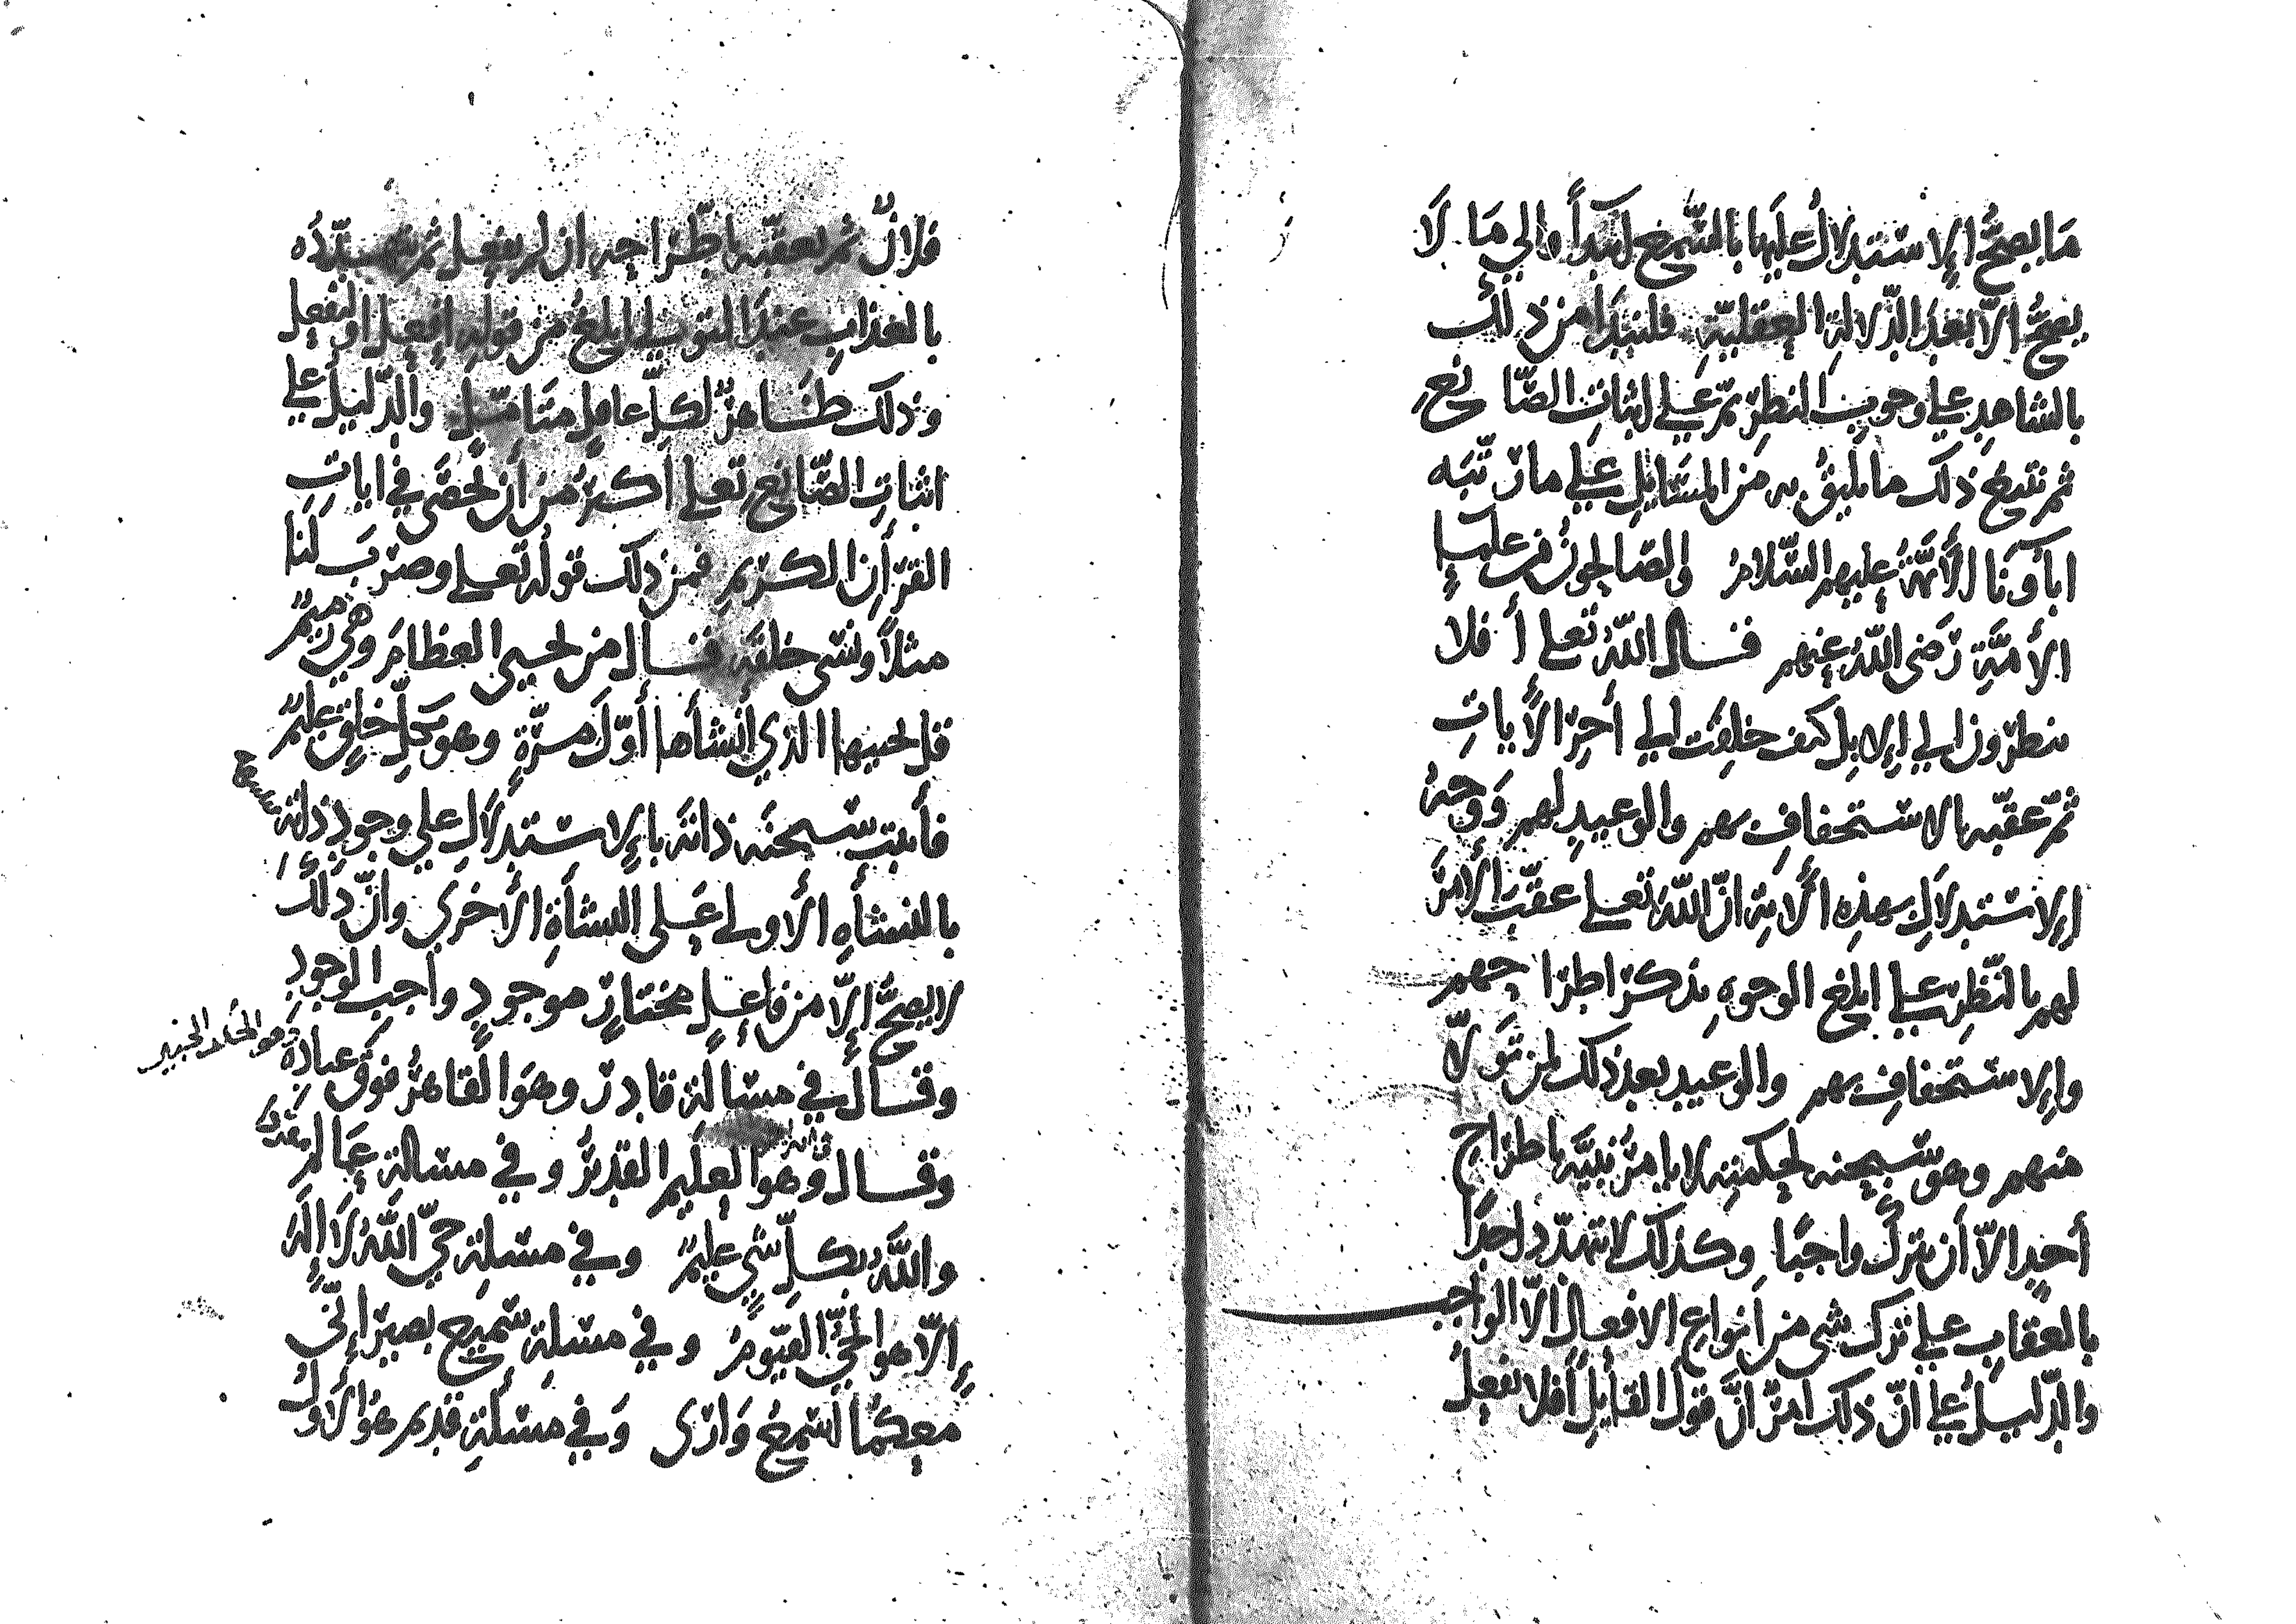 مَا يصحُّ الإستدلالُ عليها بالسَّمع ابتدأً والي مَا لَا
يصحُّ الاّ بعدَ الدّلالةِ العقليّةِ فلنبدا من ذلك
بالشاهدِ علي وجوبِ النظرِ ثمّ علي اثباتِ الصّانع
ثم نتبع ذلك ما يليقُ به من المسَايلِ علي ما رتّبَه
اباؤنَا الأَئمَّةُ عليهم السَّلامُ والصَالحونَ من علمآءِ
الأُمَّةِ رَضى اللّهُ عنهم قال اللّهُ تعلى أَ فلا
ينظرون الي الإبل كيف خلقت الي أخِر الأياتِ
ثمّ عقّبه بالاستخفافِ بهم والوعيدِ لهم وَوجهُ
الإستدلالِ بهذه ألايةِ انّ اللّهَ تعلى عقّبَ ألامرَ
لهم بالنّظرِ علي ابلغ الوجوهِ بذكر اطراحهم
والإستخفافِ بهم والوعيد بعد ذلك لمن تَولّا
منهم وهو سبحنه لحكمته لا يامرُ نبيَّه باطراح
أحدٍ الاّ أن يتركَ واجبًا وكذلك لا يتهدّد احدًا
بالعقابِ علي ترك شي من أنواعِ الافعالِ الاّ الواجب
والدّليلُ علي انّ ذلك امرٌ انَّ قولَ القايلِ أفلا نفعلُ
فلانٌ ثم يعقّبه باطّراحه ان لم يفعل ثم يتهدّدُه
بالعذابِ عندَ التولي ابلغُ من قولِه افعل او لتفعل
وذلك ظاهرٌ لكلِّ عاقلٍ متامّلٍ والدّليلُ علي
اثباتِ الصّانع تعلى اكثرُ من أن تحصَى في اياتِ
القرأنِ الكريم فمن ذلك قولُه تعلى وضربَ لَنا
مثلاً ونسَى خلقَه قال من يحيى العظامَ وهي رميمٌ
قل يحييها الذي أنشأها أوّلَ مرّةٍ وهو بكلِّ خلقٍ عليمٌ
فأثبت سبحنَه ذاتَه بالإستدلالِ علي وجودِ ذاته
بالنشأهِ الأولى علَى النشأةِ الأخرى وانّ ذلكَ
لا يصحُّ إلّا من فاعلٍ مختارٍ موجودٍ واجب الوجودِ
وقال في مسالة قادر وهوَ القاهرُ فوقَ عبادِهِ
وهو الحكيم الخبير
وقال وهو العليم القديرُ وفي مسالة عالم
واللّهُ بكلِّ شيٍ عليمٌ وفي مسلةِ حيّ اللّهُ لَا إلَهَ
إلّا هو الحيُّ القيّومُ وفي مسلةِ سميع بصير إنّني
معكمَا اسمعُ وَارَى وَفي مسئلةِ قديم هوَ الأَولُ